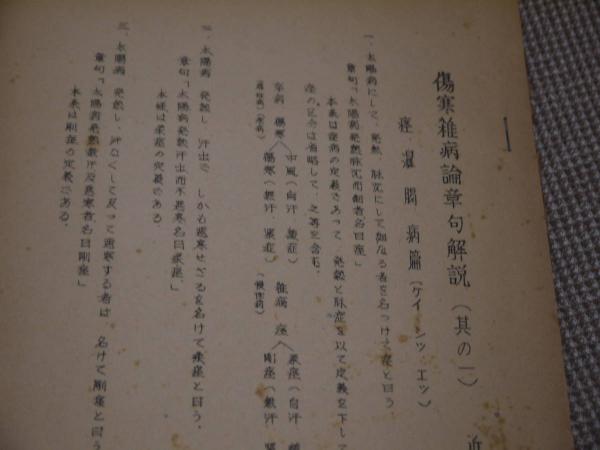 傷寒雑病論章句解説（其の一）
近
痙湿暍病篇（ケイ シツ エツ）
一、太陽病にして、発熱、脉沉にして細なる者を名づけて痙と曰う
章句「太陽病発熱脉沉而細者名曰痙」
本条は痙病の定義であって、発熱と脉症を以て定義を下して
痙の区分は省略して、之等を含む。
卒病 傷寒 中風（自汗 緩症） 雑病 痙 柔痙（自汗
傷寒（無汗、緊症） 剛痙（無汗 緊
（慢性病）
二、太陽病 発熱し 汗出で、しかも悪寒せざるを名けて柔痙と曰う。
章句「太陽病発熱汗出而不悪寒名曰柔痙」
本條は柔痙の定義である。
三、太陽病 発熱し、汗なくして反って悪寒する者は、名けて剛痙と曰う
章句「太陽病発熱無汗反悪寒者名曰剛痙」
本条は剛痙の定義である。